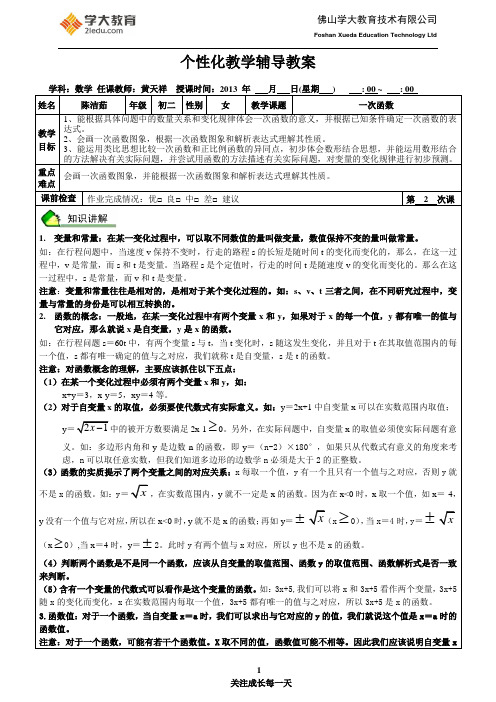 学大教育
2ledu.com
佛山学大教育技术有限公司
Foshan Xueda Education Technology Ltd
个性化教学辅导教案
学科：数学 任课教师：黄天祥 授课时间：2013 年 月 日(星期 ) : 00 ~ : 00
姓名 陈洁茹 年级 初二 性别 女 教学课题 一次函数
教学目标
1、能根据具体问题中的数量关系和变化规律体会一次函数的意义，并根据已知条件确定一次函数的表
达式。
2、会画一次函数图象，根据一次函数图象和解析表达式理解其性质。
3、能运用类比思想比较一次函数和正比例函数的异同点，初步体会数形结合思想，并能运用数形结合
的方法解决有关实际问题，并尝试用函数的方法描述有关实际问题，对变量的变化规律进行初步预测。
重点难点
会画一次函数图象，并能根据一次函数图象和解析表达式理解其性质。
课前检查 作业完成情况：优□ 良□ 中□ 差□ 建议
第 2 次课
知识讲解
1. 变量和常量：在某一变化过程中，可以取不同数值的量叫做变量，数值保持不变的量叫做常量。
如：在行程问题中，当速度 v 保持不变时，行走的路程 s 的长短是随时间 t 的变化而变化的，那么，在这一过
程中，v 是常量，而 s 和 t 是变量。当路程 s 是个定值时，行走的时间 t 是随速度 v 的变化而变化的。那么在这
一过程中，s 是常量，而 v 和 t 是变量。
注意：变量和常量往往是相对的，是相对于某个变化过程的。如：s、v、t 三者之间，在不同研究过程中，变
量与常量的身份是可以相互转换的。
2. 函数的概念：一般地，在某一变化过程中有两个变量 x 和 y，如果对于 x 的每一个值，y 都有唯一的值与
它对应，那么就说 x 是自变量，y 是 x 的函数。
如：在行程问题 s=60t 中，有两个变量 s 与 t，当 t 变化时，s 随这发生变化，并且对于 t 在其取值范围内的每
一个值，s 都有唯一确定的值与之对应，我们就称 t 是自变量，s 是 t 的函数。
注意：对函数概念的理解，主要应该抓住以下五点：
（1）在某一个变化过程中必须有两个变量 x 和 y，如：
x+y=3，x-y=5，xy=4 等。
（2）对于自变量 x 的取值，必须要使代数式有实际意义。如：y=2x+1 中自变量 x 可以在实数范围内取值；
y=√2x−1 中的被开方数要满足 2x-1≥0。另外，在实际问题中，自变量 x 的取值必须使实际问题有意
义。如：多边形内角和 y 是边数 n 的函数，即 y=（n-2）×180°，如果只从代数式有意义的角度来考
虑，n 可以取任意实数，但我们知道多边形的边数 n 必须是大于 2 的正整数。
（3）函数的实质揭示了两个变量之间的对应关系：x 每取一个值，y 有一个且只有一个值与之对应，否则 y 就
不是 x 的函数。如：y=√x ，在实数范围内，y 就不一定是 x 的函数。因为在 x<0 时，x 取一个值，如 x=-4，
y 没有一个值与它对应，所以在 x<0 时，y 就不是 x 的函数；再如 y=±√x（x≥0），当 x=4 时，y=±√x
（x≥0），当 x=4 时，y=±2。此时 y 有两个值与 x 对应，所以 y 也不是 x 的函数。
（4）判断两个函数是不是同一个函数，应该从自变量的取值范围、函数 y 的取值范围、函数解析式是否一致
来判断。
（5）含有一个变量的代数式可以看作是这个变量的函数。如：3x+5，我们可以将 x 和 3x+5 看作两个变量，3x+5
随 x 的变化而变化，x 在实数范围内每取一个值，3x+5 都有唯一的值与之对应，所以 3x+5 是 x 的函数。
3.函数值：对于一个函数，当自变量 x=a 时，我们可以求出与它对应的 y 的值，我们就说这个值是 x=a 时的
函数值。
注意：对于一个函数，可能有若干个函数值。X 取不同的值，函数值可能不相等。因此我们应该说明自变量 x
1
关注成长每一天